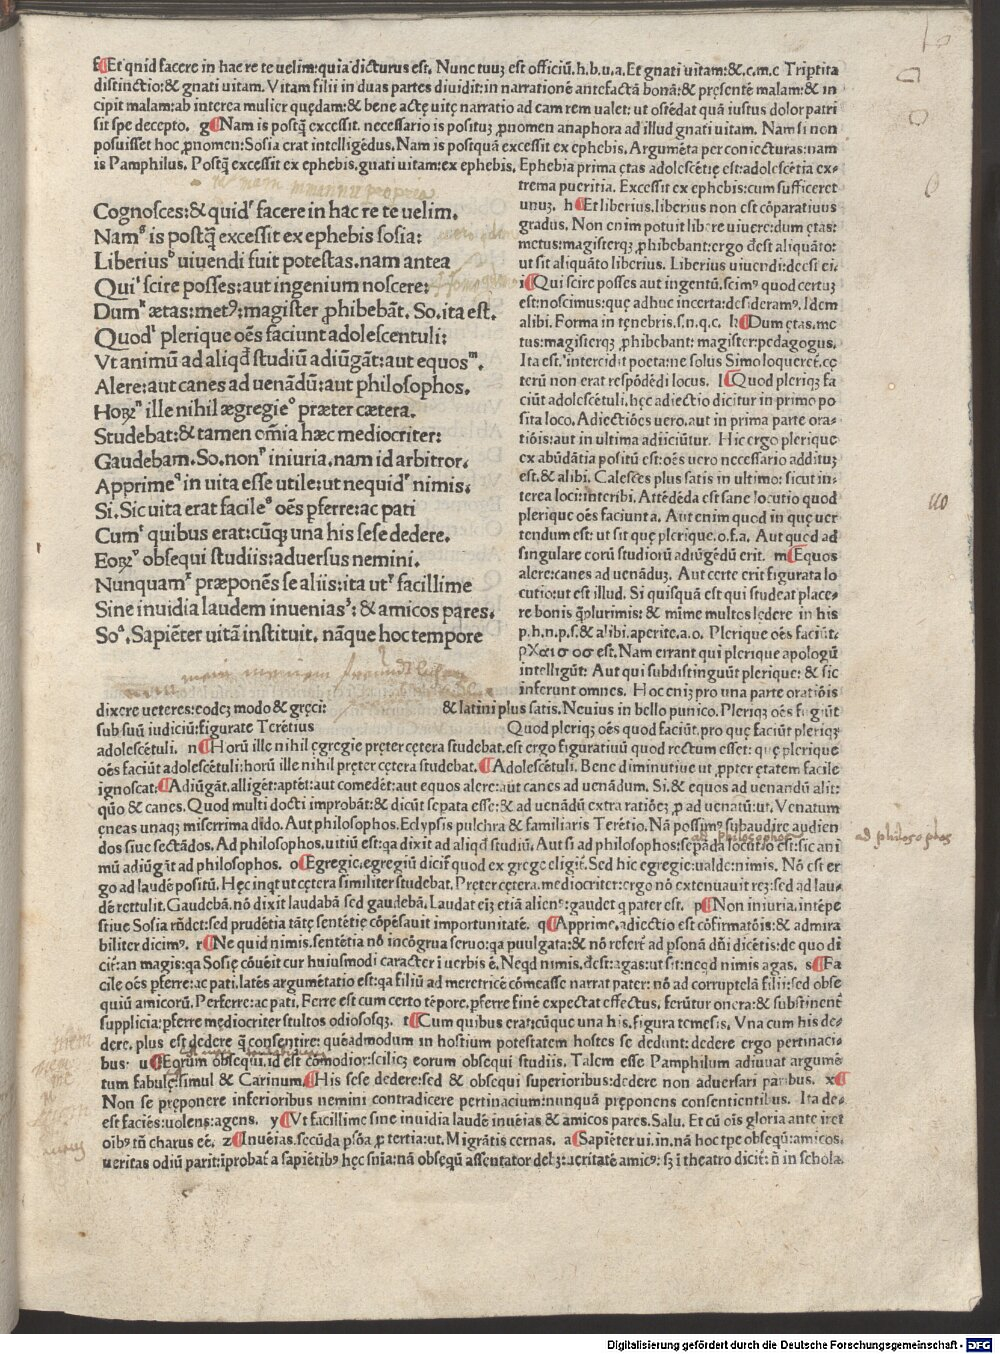 f¶Et quid facere in hac re te uelim:quia dicturus est. Nunc tuuꝫ est officiũ.h.b.u.a.Et gnati uitam:&.c.m.c Triptita
distinctio:& gnati uitam. Vitam filii in duas partes diuidit:in narrationẽ antefactã bonã:& pręsentẽ malam:& in
cipit malam:ab interea mulier quędam:& bene actę uitę narratio ad eam rem ualet: ut ostẽdat quã iustus dolor patri
sit spe decepto. g¶Nam is postꝗ̃ excessit. necessario is posituꝫ ꝓnomen anaphora ad illud gnati uitam. Nam si non
posuisset hoc ꝓnomen:Sosia erat intelligẽdus.Nam is postquã excessit ex ephebis. Argumẽta per coniecturas:nam
is Pamphilus. Postꝗ̃ excessit ex ephebis.gnati uitam:ex ephebis. Ephebia prima ętas adolescẽtię est:adolescẽtia ex-
trema pueritia. Excessit ex ephebis:cum sufficeret
unuꝫ. h¶Et liberius.liberius non est cõparatiuus
gradus. Non enim potuit libere uiuere:dum ętas:
metus:magisterqꝫ ꝓhibebant:ergo deest aliquãto:
ut sit aliquãto liberius. Liberius uiuendi:deest ei.
i¶Qui scire posses aut ingeniũ.scimꝰ quod certuꝫ
est:noscimus:que adhuc incerta:desideramꝰ. Idem
alibi. Forma in tęnebris.s.n.q.c. k¶Dum ętas.me
tus:magisterqꝫ ꝓhibebant: magister:pedagogus.
Ita est. intercidit poeta:ne solus Simo loqueret.cę
terũ non erat respõdẽdi locus. l¶Quod pleriqꝫ fa
ciũt adolescẽtuli.hęc adiectio dicitur in primo po
sita loco.Adiectiões uero.aut in prima parte ora-
tiõis:aut in ultima adiiciũtur. Hic ergo plerique
ex abũdãtia positũ est:oẽs uero necessario addituꝫ
est.& alibi. Calesces plus satis in ultimo: sicut in-
terea loci:interibi. Attẽdẽda est sane locutio quod
plerique oẽs faciunt a. Aut enim quod in quę uer
tendum est: ut sit quę plerique.o.f.a. Aut quod ad
singulare eorũ studiorũ adiũgẽdũ erit. m¶Equos
alere:canes ad uenãduꝫ. Aut certe erit figurata lo
cutio:ut est illud. Si quisquã est qui studeat place-
re bonis ꝗ̃plurimis: & mĩme multos lędere in his
p.h.n.p.s.& alibi.aperite.a.o. Plerique oẽs faciũt.
est. Nam errant qui plerique apologũ
intelligũt: Aut qui subdistinguũt plerique: & sic
inferunt omnes. Hoc eniꝫ pro una parte oratiõis
Cognosces:& quidʳ facere in hac re te uelim.
Namᵍ is postꝗ̃ excessit ex ephebis sosia:
Liberiusʰ uiuendi fuit potestas.nam antea
Quiⁱ scire posses:aut ingenium noscere:
Dumᵏ ætas:metꝰ:magister ꝓhibebãt. So.ita est.
Quodˡ plerique oẽs faciunt adolescentuli:
Vt animũ ad aliqđ studiũ adiũgãt:aut equosᵐ.
Alere:aut canes ad uenãdũ:aut philosophos.
Hoꝝⁿ ille nihil ægregieᵒ præter cætera.
Studebat:& tamen om̃ia hæc mediocriter:
Gaudebam.So.nonᵖ iniuria.nam id arbitror.
Apprimeq in uita esse utile:ut nequidʳ nimis.
Si.Sic uita erat facileˢ oẽs ꝑferre:ac pati
Cumᵗ quibus erat:cũqꝫ una his sese dedere.
Eoꝝᵛ obsequi studiis:aduersus nemini.
Nunquamˣ præponẽs se aliis:ita utʸ facillime
Sine inuidia laudem inueniasᶻ: & amicos pares.
Soᵃ.Sapiẽter uitã instituit. nãque hoc tempore
dixere ueteres:eodeꝫ modo & gręci: & latini plus satis. Neuius in bello punico. Pleriqꝫ oẽs fugiũt
sub suũ iudiciũ:figurate Terẽtius Quod pleriqꝫ oẽs quod faciũt.pro quę faciũt pleriqꝫ
adolescẽtuli. n¶Horũ ille nihil ęgregie pręter cętera studebat.est ergo figuratiuũ quod rectum esset: quę plerique
oẽs faciũt adolescẽtuli:horũ ille nihil pręter cętera studebat.¶Adolescẽtuli. Bene diminutiue ut ꝓpter ętatem facile
ignoscat.¶Adiũgãt.alligẽt:aptẽt:aut comedẽt:aut equos alere:aut canes ad uenãdum. Si.& equos ad uenandũ alit:
quo & canes. Quod multi docti improbãt:& dicũt sepata esse:& ad uenãdũ extra ratiõeꝫ ꝓ ad uenatũ:ut. Venatum
ęneas unaqꝫ miserrima dido. Aut philosophos. Eclypsis pulchra & familiaris Terẽtio. Nã possimꝰ subaudire audien
dos siue sectãdos. Ad philosophos.uitiũ est:qa dixit ad aliqđ studiũ. Aut si ad philosophos:sepãda locutio est:sic ani
mũ adiũgãt ad philosophos. o¶Egregie.egregiũ dicit quod ex grege eligit. Sed hic egregie:ualde:nimis. Nõ est er
go ad laudẽ positũ. Hęc inqt ut cętera similiter studebat. Pręter cętera.mediocriter:ergo nõ extenuauit reꝫ:sed ad lau-
dẽ rettulit. Gaudebã.nõ dixit laudabã sed gaudebã. Laudat eiꝫ etiã aliens:gaudet q pater est. p¶Non iniuria.intẽpe
stiue Sosia rñdet:sed prudẽtia tãtę sentẽtię cõpẽsauit importunitatẽ. q¶Apprime.adiectio est cõfirmatõis:& admira
biliter dicimꝰ. r¶Ne quid nimis.sentẽtia nõ incõgrua seruo:qa puulgata:& nõ refert ad ꝑsonã dñi dicẽtis:de quo di
cit:an magis:qa Sosię cõuẽit cur huiusmodi caracter ĩ uerbis ẽ. Neqđ nimis.deest:agas:ut sit:neqđ nimis agas. s¶Fa
cile oẽs ꝑferre:ac pati.latẽs argumẽtatio est:qa filiũ ad meretricẽ cõmeasse narrat pater: nõ ad corruptelã filii:sed obse
quiũ amicorũ. Perferre:ac pati. Ferre est cum certo tẽpore.ꝑferre finẽ expectat effectus. ferũtur onera:& substinent
supplicia:ꝑferre mędiocriter stultos odiososqꝫ. t¶Cum quibus erat:cũque una his.figura temesis. Vna cum his de-
dere. plus est dedere ꝗ̃ consentire: quẽadmodum in hostium potestatem hostes se dedunt: dedere ergo pertinaci-
bus. u¶Eorum obsequi.id est cõmodior:sciliceꝫ eorum obsequi studiis. Talem esse Pamphilum adiuuat argumẽ
tum fabulę:simul & Carinum.¶His sese dedere:sed & obsequi superioribus:dedere non aduersari paribus. x¶
Non se pręponere inferioribus nemini contradicere pertinacium:nunquã pręponens consentientibus. Ita de-
est faciẽs:uolens:agens. y¶Vt facillime sine inuidia laudẽ inuẽias & amicos pares. Salu. Et cũ oĩs gloria ante iret
oĩbꝰ tñ charus eẽ. z¶Inuẽias.secũda ꝑsõa ꝓ tertia:ut. Migrãtis cernas. a¶Sapiẽter ui.in.nã hoc tpe obseqũ:amicos.
ueritas odiũ parit:ĩprobat a sapiẽtibꝰ hęc snĩa:nã obseqũ assentator deleꝫ:ueritatẽ amicꝰ: sꝫ ĩ theatro dicit: ñ in schola.
ad philosophos
ad philosophos
Digitalisierung gefördert durch die Deutsche Forschungsgemeinschaft - DFG